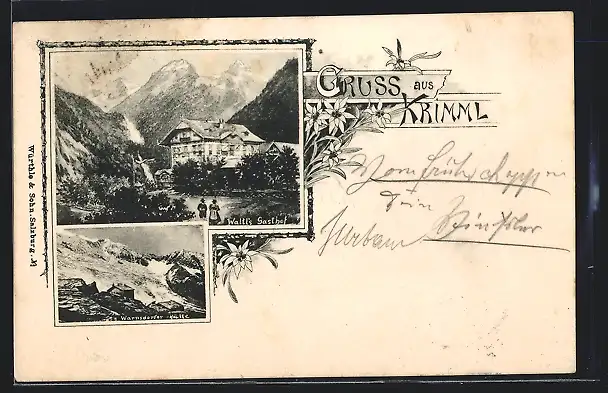 GRUSS aus
KRIMML
Waltl's Gasthof
Warnsdorfer Hütte
Würthle & Sohn, Salzburg.
Vom Frühschoppen
Dein